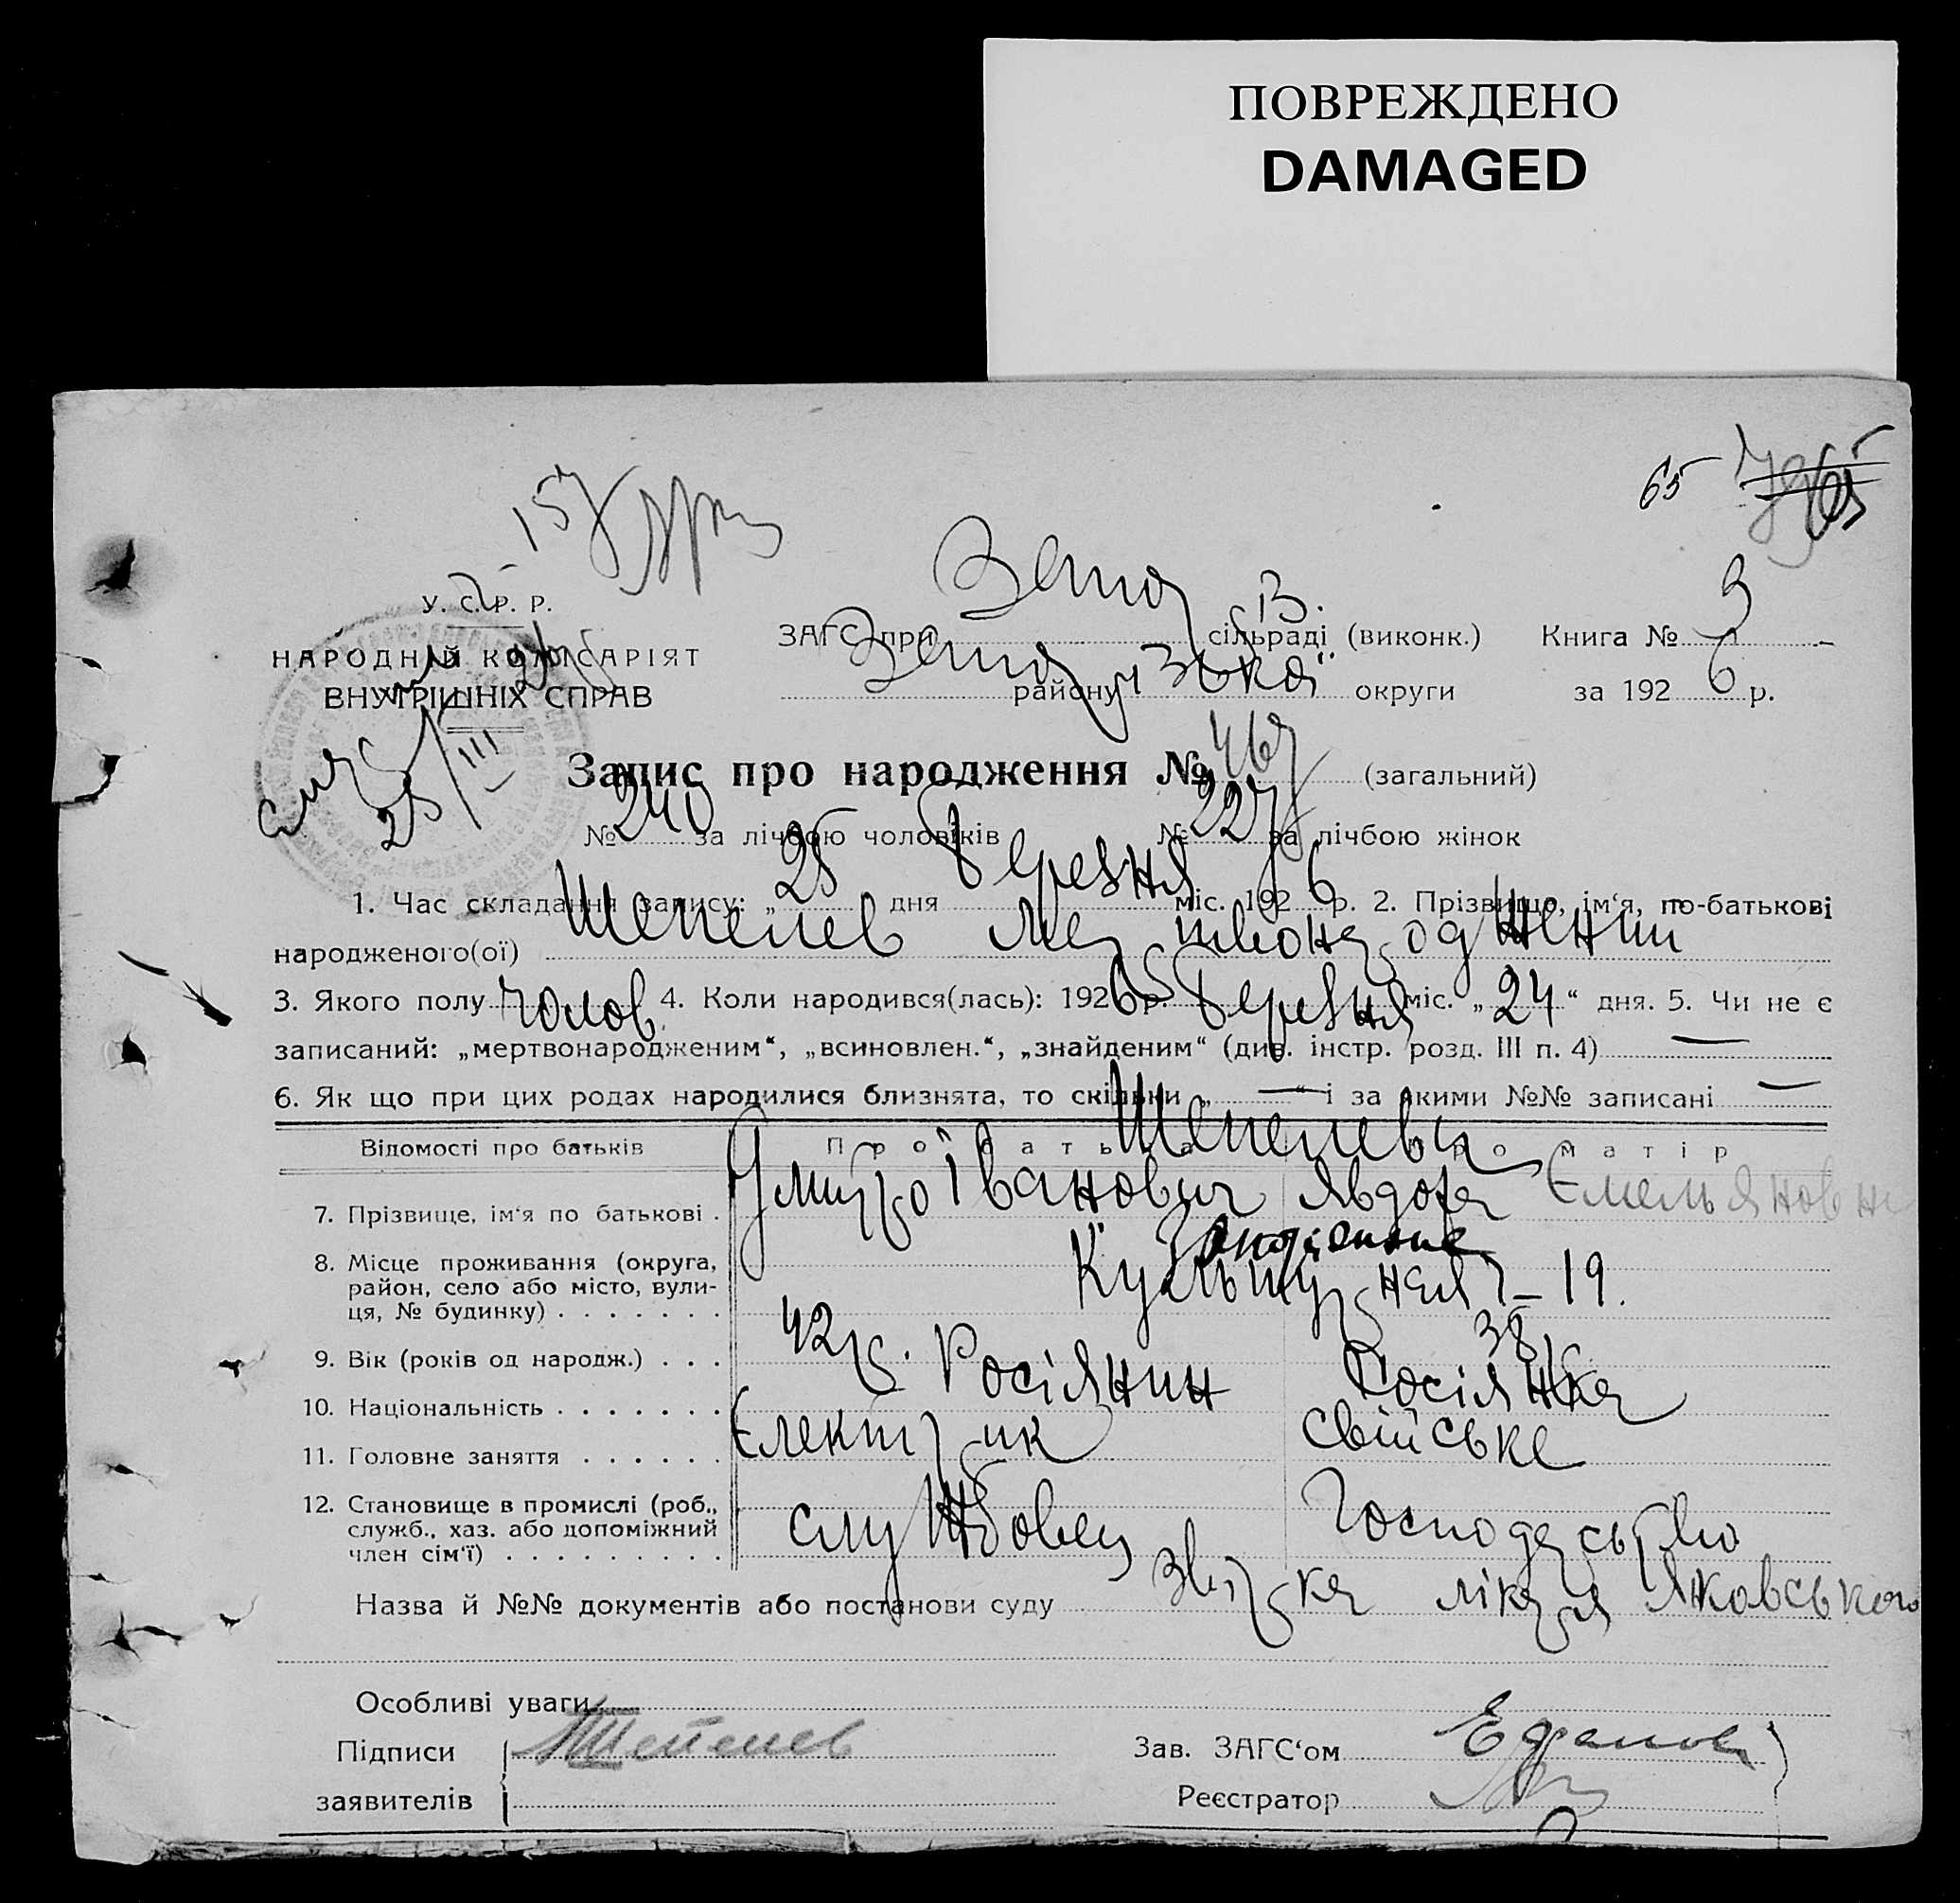 ПОВРЕЖДЕНО
DAMAGED
65
157
У. С. Р. Р.
НАРОДНІЙ КОМІСАРІЯТ
ВНУТРІШНІХ СПРАВ
ЗАГС при Запор сільраді (виконк.) Книга № 3
Запор району Зької округи за 1926 р.
28/III
Запис про народження № 467 (загальний)
№ 240 за лічбою чоловіків № 227 за лічбою жінок
1. Час складання запису: „25 дня березня міс. 1926 р. 2. Прізвище, ім‘я, по-батькові
народженого(ої) Шепелев мертвонароджений
3. Якого полу чолов. 4. Коли народився(лась): 1926 р. березня міс. „24“ дня. 5. Чи не є
записаний: „мертвонародженим“, „всиновлен.“, „знайденим“ (див. інстр. розд. III п. 4) —
6. Як що при цих родах народилися близнята, то скільки „—“ і за якими №№ записані —
Відомості про батьків Про батька Про матір
Шепелеви
7. Прізвище, ім‘я по батькові . Дмитро Іванович Явдоха Емельяновна
8. Місце проживання (округа, район, село або місто, вулиця, № будинку) . . . . . . . 19.
9. Вік (років од народж.) . . . 42 р. 38 р.
10. Національність . . . . . . . Росіянин Росіянка
11. Головне заняття . . . . . . Електрик свійське
12. Становище в промислі (роб., служб., хаз. або допоміжний член сім‘ї) . . . . . . . . . службовец господарство
Назва й №№ документів або постанови суду звірка лікаря Яковського
Особливі уваги
Підписи Шепелев Зав. ЗАГС‘ом
заявителів Реєстратор